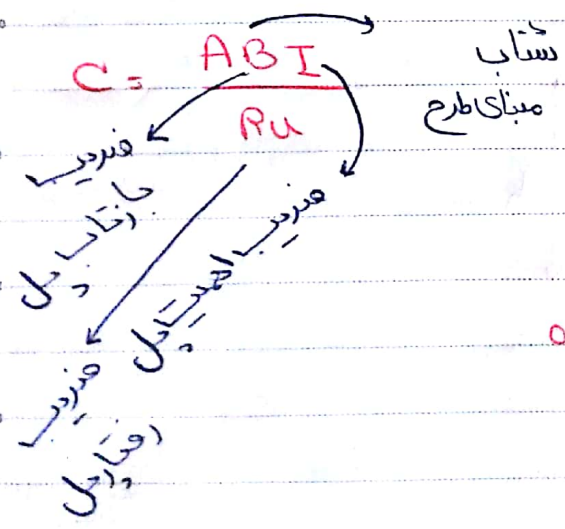 C = ABI / Ru
شتاب
مبنای طرح
ضریب
بازتاب پل
ضریب اهمیت پل
ضریب
رفتار پل